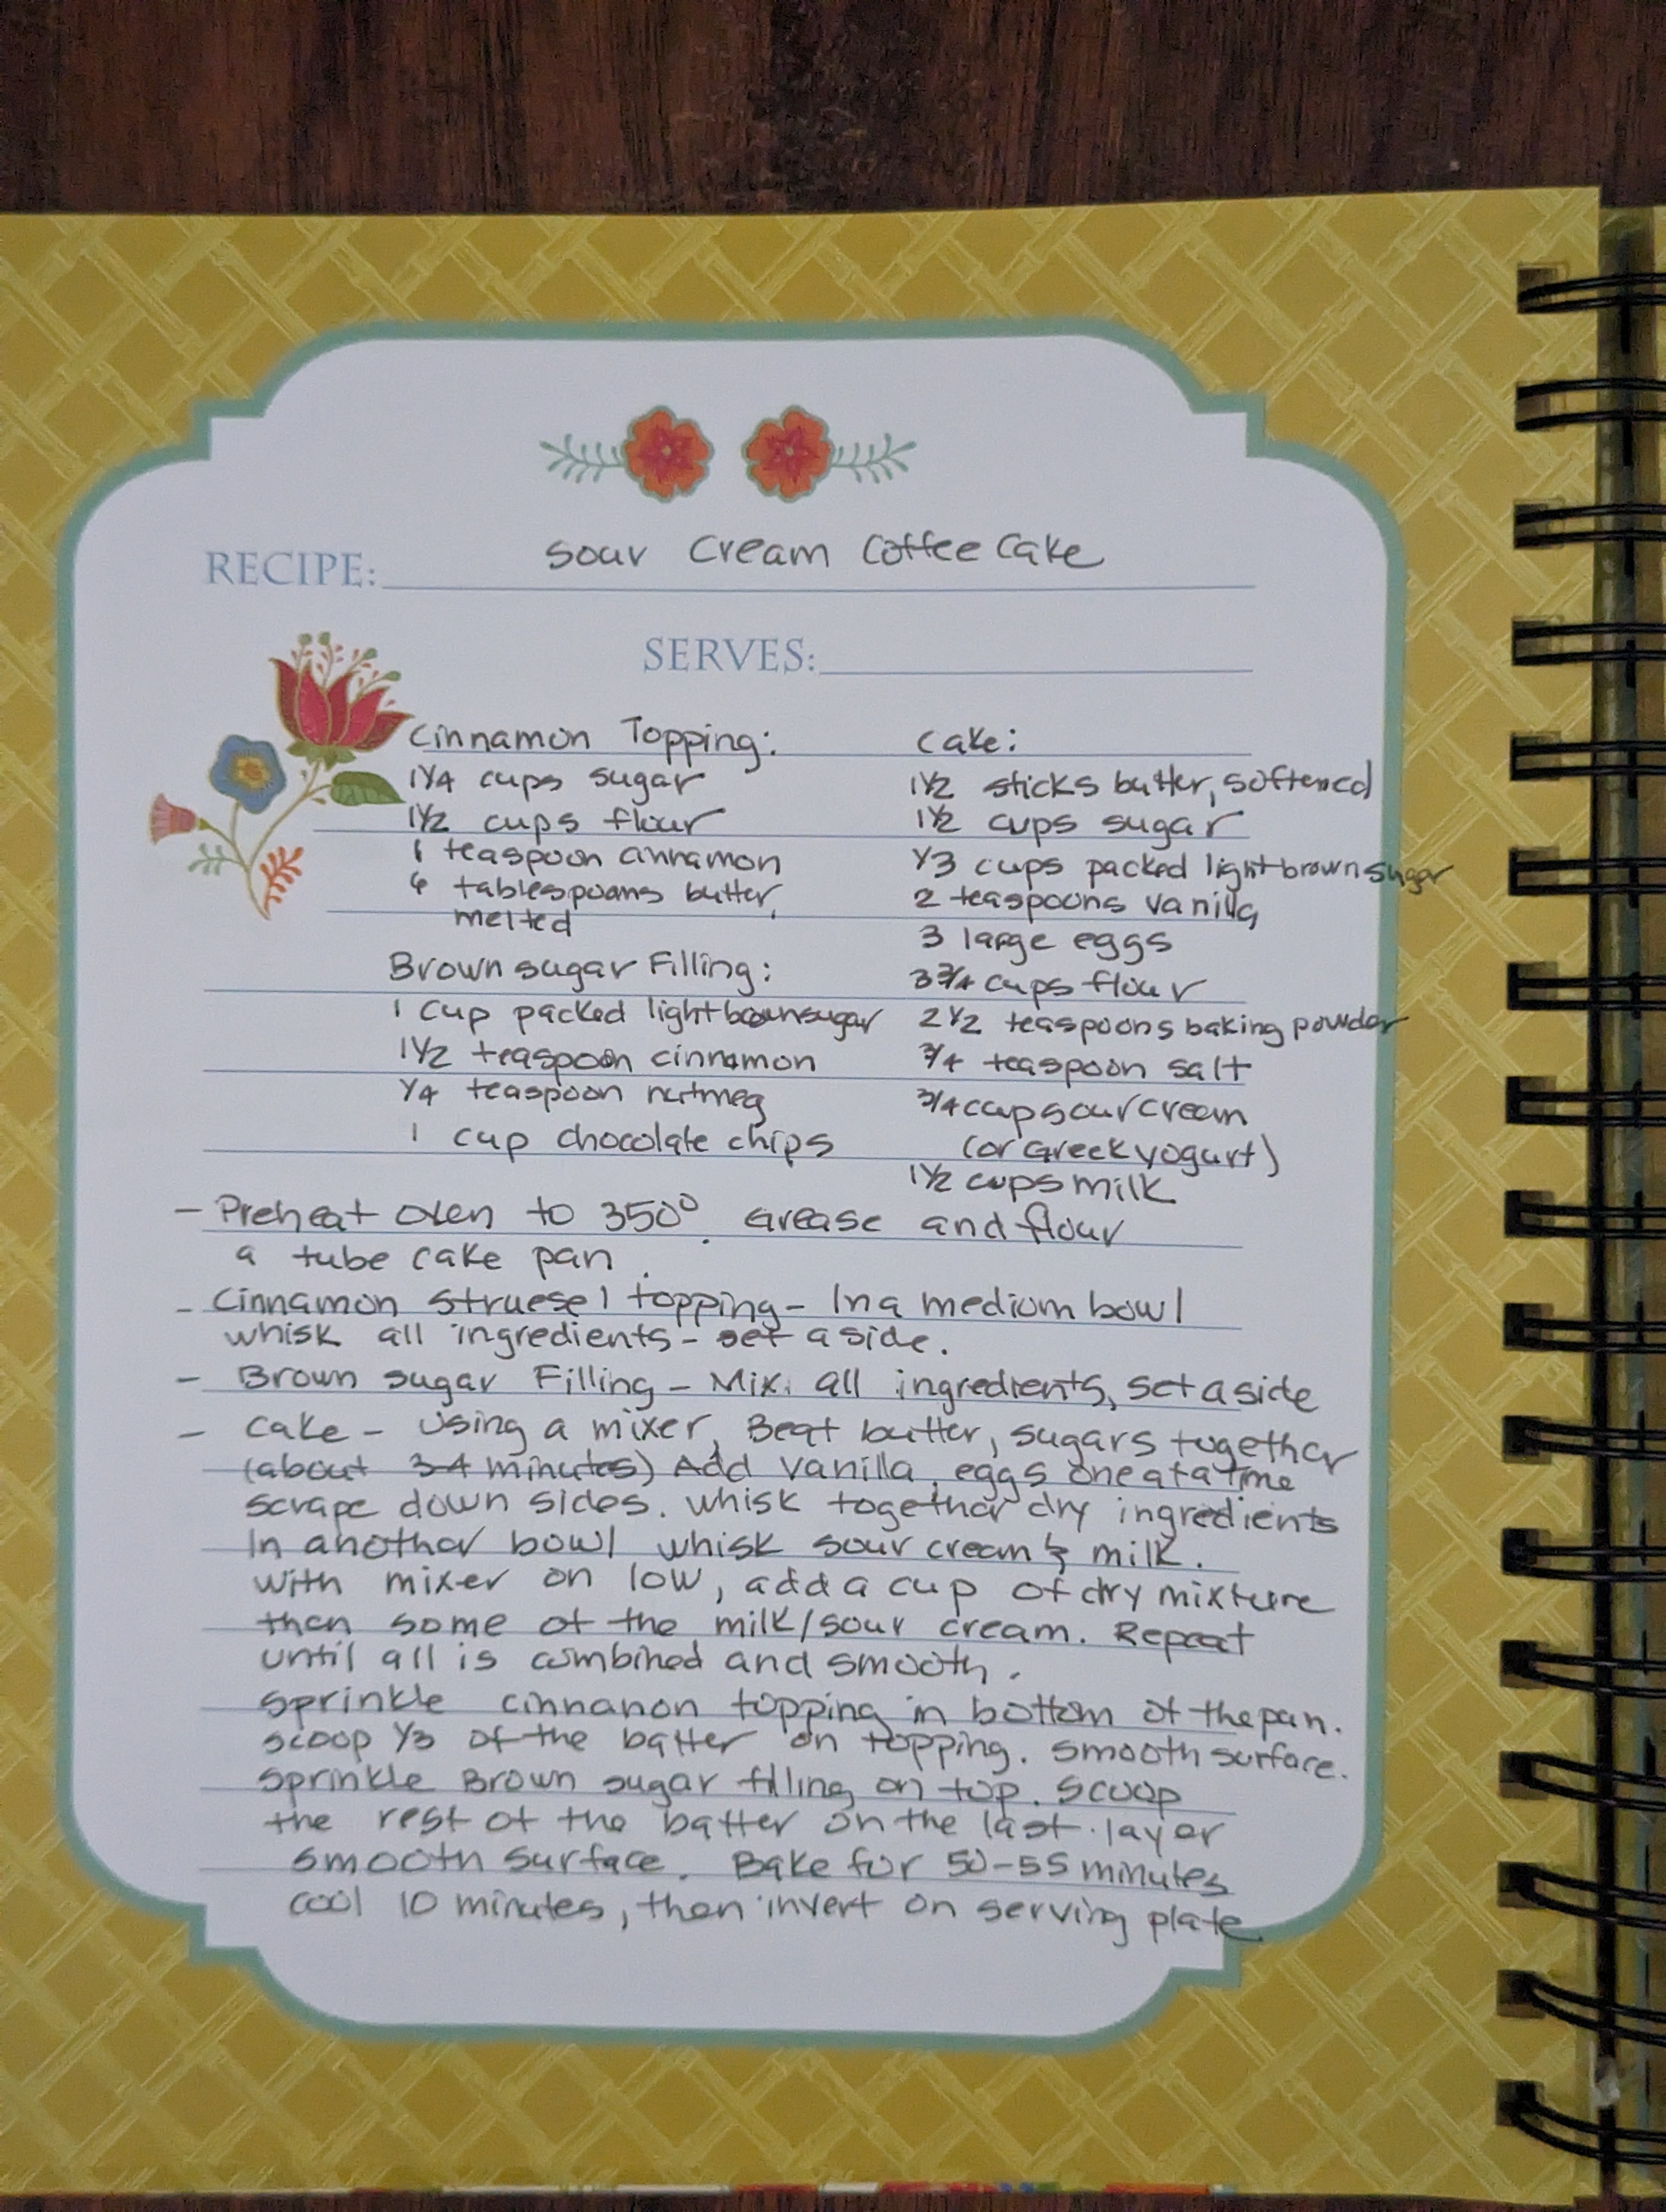 RECIPE: Sour Cream Coffee Cake
SERVES:
Cinnamon Topping:
1 1/4 cups sugar
1 1/2 cups flour
1 teaspoon cinnamon
6 tablespoons butter,
melted
Brown sugar Filling:
1 cup packed light brown sugar
1 1/2 teaspoon cinnamon
1/4 teaspoon nutmeg
1 cup chocolate chips
Cake:
1 1/2 sticks butter, softened
1 1/2 cups sugar
1/3 cups packed light brown sugar
2 teaspoons vanilla
3 large eggs
3 3/4 cups flour
2 1/2 teaspoons baking powder
3/4 teaspoon salt
3/4 cup sour cream
(or Greek yogurt)
1 1/2 cups milk
- Preheat oven to 350°. Grease and flour
a tube cake pan.
- Cinnamon Struesel topping - In a medium bowl
whisk all ingredients - set aside.
- Brown sugar Filling - Mix all ingredients, set aside
- Cake - Using a mixer, Beat butter, sugars together
(about 3-4 minutes) Add vanilla, eggs one at a time
scrape down sides. whisk together dry ingredients
In another bowl whisk sour cream & milk.
with mixer on low, add a cup of dry mixture
then some of the milk/sour cream. Repeat
until all is combined and smooth.
Sprinkle cinnanon topping in bottom of the pan.
scoop 1/3 of the batter on topping. Smooth surface.
Sprinkle Brown sugar filling on top. Scoop
the rest of the batter on the last layer
smooth surface. Bake for 50-55 minutes
cool 10 minutes, then invert on serving plate